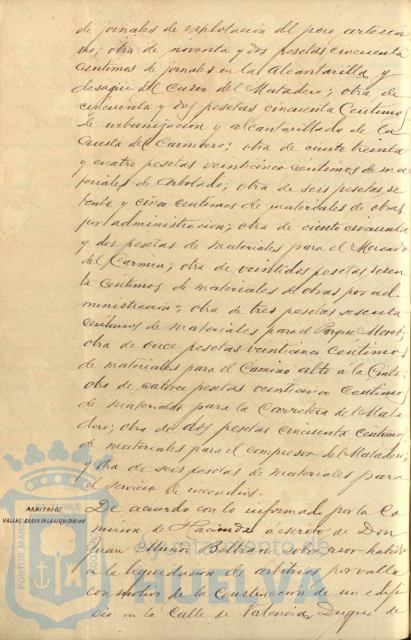 de jornales de explotación del pozo artesia
no; otra de noventa y dos pesetas cincuenta
centimos de jornales en la Alcantarilla y
desagüe del Curso del Matadero; otra de
cincuenta y dos pesetas cincuenta Centimos
de urbanizacion y alcantarillado de la
Cuesta del Carnicero; otra de ciento treinta
y cuatro pesetas veinticinco centimos de ma
teriales de Arbolado; otra de seis pesetas se
tenta y cinco centimos de materiales de obras
por administracion; otra de ciento cincuenta
y dos pesetas de materiales para el Mercado
del Carmen; otra de veintidos pesetas sesen
ta centimos de materiales de obras por ad-
ministración; otra de tres pesetas sesenta
centimos de materiales para el Parque Moret;
otra de once pesetas veinticinco centimos
de materiales para el Camino alto a la Cinta;
otra de catorce pesetas veinticinco centimos
de materiales para la Carretera del Mata
dero; otra de dos pesetas cincuenta centimos
de materiales para el compresor del Matadero;
y otra de seis pesetas de materiales para
el servicio de incendios.
ARBITRIOS
VALLAS
De acuerdo con lo informado por la Co
mision de Hacienda acerca de Don
Juan Muñoz Beltran, sobre error habido
en la liquidacion de arbitrios por valla
con motivo de la Construccion de un edifi
cio en la Calle de Valencia, Duque de
PORTUS MARIS
ayuntamiento de
HUELVA